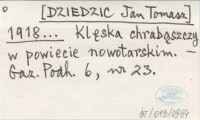 [DZIEDZIC Jan Tomasz]
1918... Klęska chrabąszczy
w powiecie nowotarskim. –
Gaz. Podh. 6, nr 23.